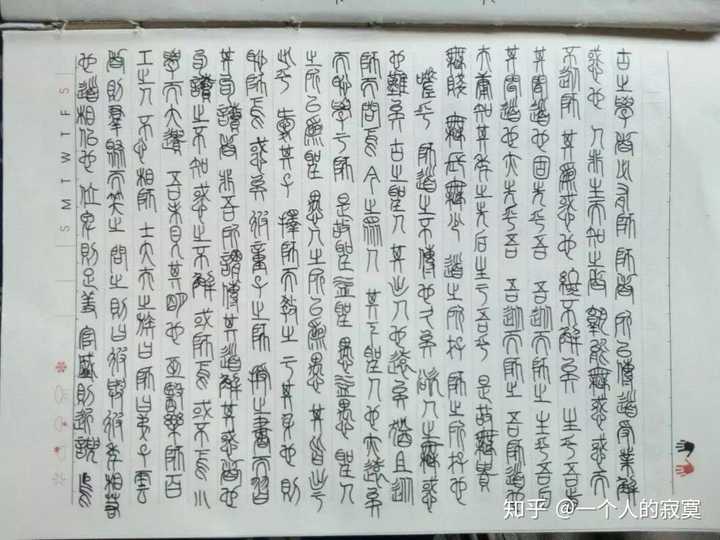 古之學者必有師 師者 所以傳道受業解
惑也 人非生而知之者 孰能無惑 惑而
不從師 其為惑也 終不解矣 生乎吾前
其聞道也固先乎吾 吾從而師之 生乎吾后
其聞道也亦先乎吾 吾從而師之 吾師道也
夫庸知其年之先后生于吾乎 是故無貴
無賤 無長無少 道之所存 師之所存也
嗟乎 師道之不傳也久矣 欲人之無惑
也難矣 古之聖人 其出人也遠矣 猶且從
師而問焉 今之眾人 其下聖人也亦遠矣
而恥學于師 是故聖益聖 愚益愚 聖人
之所以為聖 愚人之所以為愚 其皆出于
此乎 愛其子 擇師而教之 于其身也 則
恥師焉 惑矣 彼童子之師 授之書而習
其句讀者 非吾所謂傳其道解其惑者也
句讀之不知 惑之不解 或師焉 或不焉 小
學而大遺 吾未見其明也 巫醫樂師百
工之人 不恥相師 士大夫之族 曰師曰弟子雲
者 則群聚而笑之 問之 則曰彼與彼年相若
也 道相似也 位卑則足羞 官盛則近諛 嗚
S M T W T F S
知乎 @一个人的寂寞